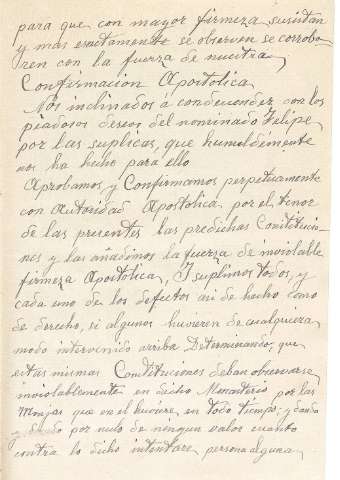 para que con mayor firmeza susistan
y mas esactamente se observen se corrobo-
ren con la fuerza de nuestra
Confirmacion Apostolica
Nos inclinados á condecender con los
piadosos deseos del nominado Felipe
por las suplicas, que humildemente
nos ha hecho para ello
Aprobamos y Confirmamos perpetuamente
con Autoridad Apostolica por el tenor
de las presentes las predichas Constitucio-
nes y las añadimos la fuerza de inviolable
firmeza Apostolica, Y suplimos todos, y
cada uno de los defectos asi de hecho como
de derecho, si algunos huvieren de cualquiera
modo intervenido arriba Determinando, que
estas mismas Constituciones deban observarse
inviolablemente en dicho Monasterio por las
Monjas que en el huviere en todo tiempo; y dando
y dando por nulo de ningun valor cuanto
contra lo dicho intentare persona alguna